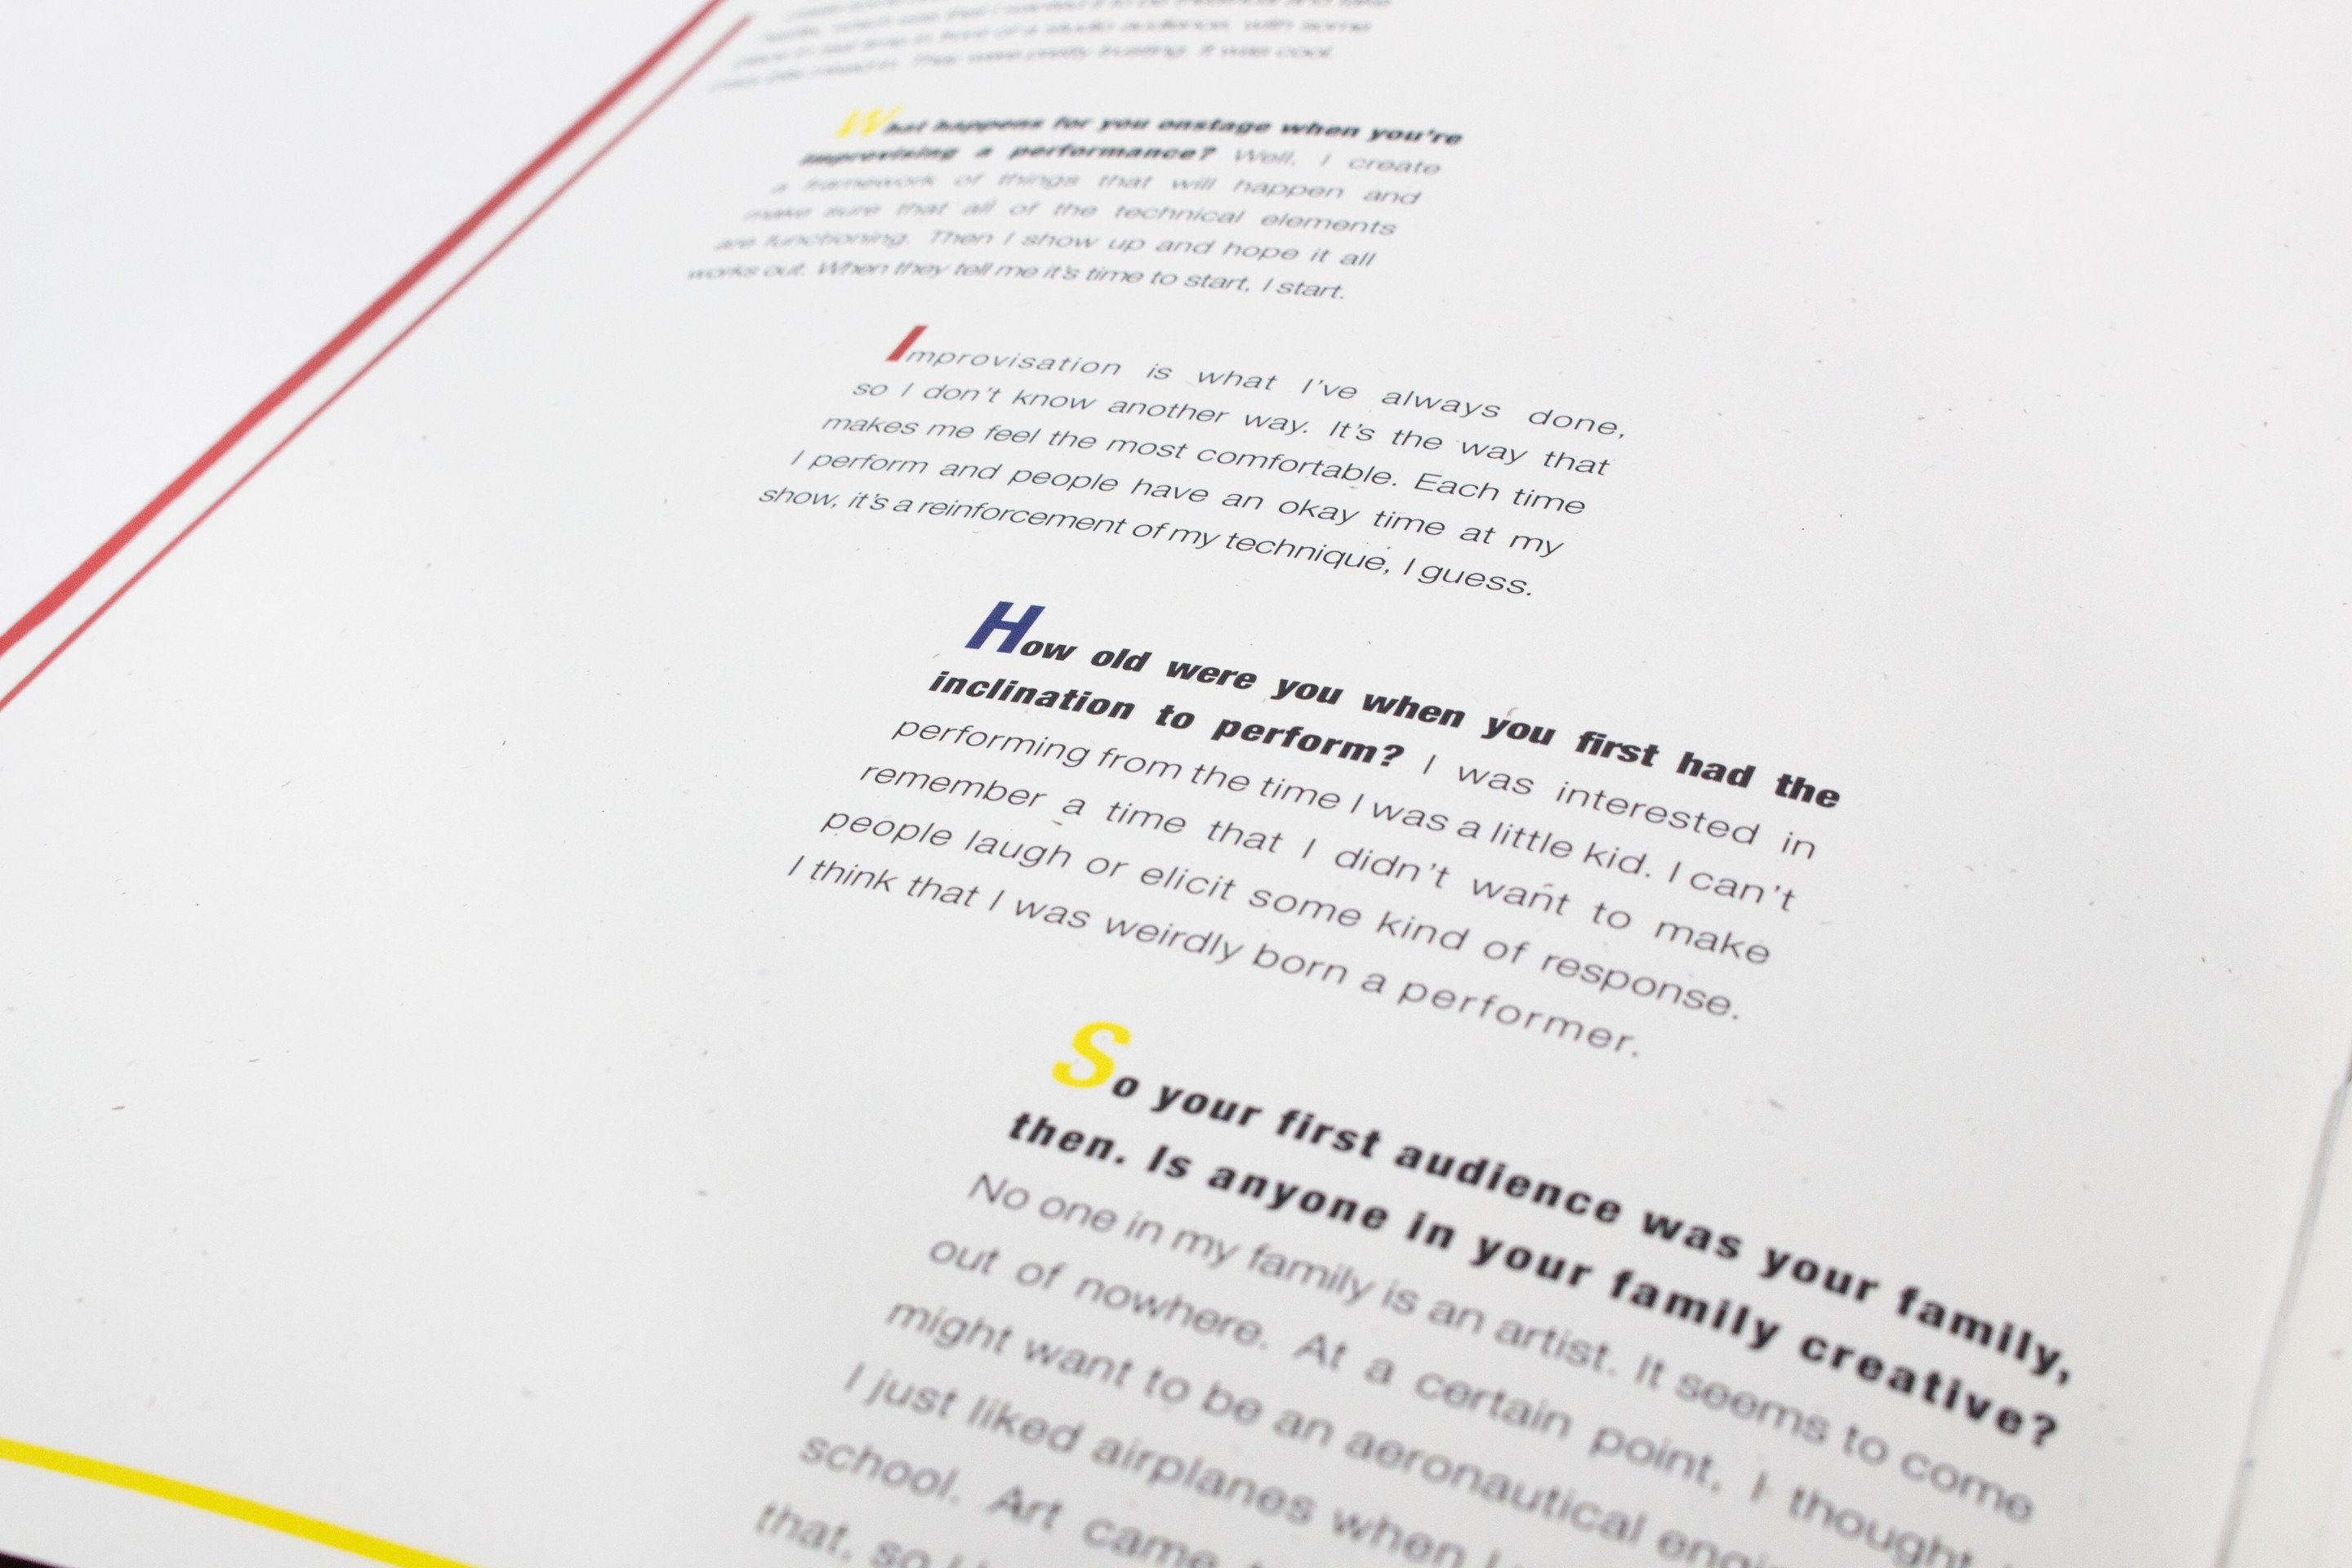 place in real time in front of a studio audience, with some
They were pretty trusting. It was cool.
What happens for you onstage when you're
improvising a performance? Well, I create
a framework of things that will happen and
make sure that all of the technical elements
are functioning. Then I show up and hope it all
works out. When they tell me it's time to start, I start.
Improvisation is what I've always done,
so I don't know another way. It's the way that
makes me feel the most comfortable. Each time
I perform and people have an okay time at my
show, it's a reinforcement of my technique, I guess.
How old were you when you first had the
inclination to perform? I was interested in
performing from the time I was a little kid. I can't
remember a time that I didn't want to make
people laugh or elicit some kind of response.
I think that I was weirdly born a performer.
So your first audience was your family,
then. Is anyone in your family creative?
No one in my family is an artist. It seems to come
out of nowhere. At a certain point, I thought
might want to be an aeronautical
I just liked airplanes when I
school. Art came
that, so